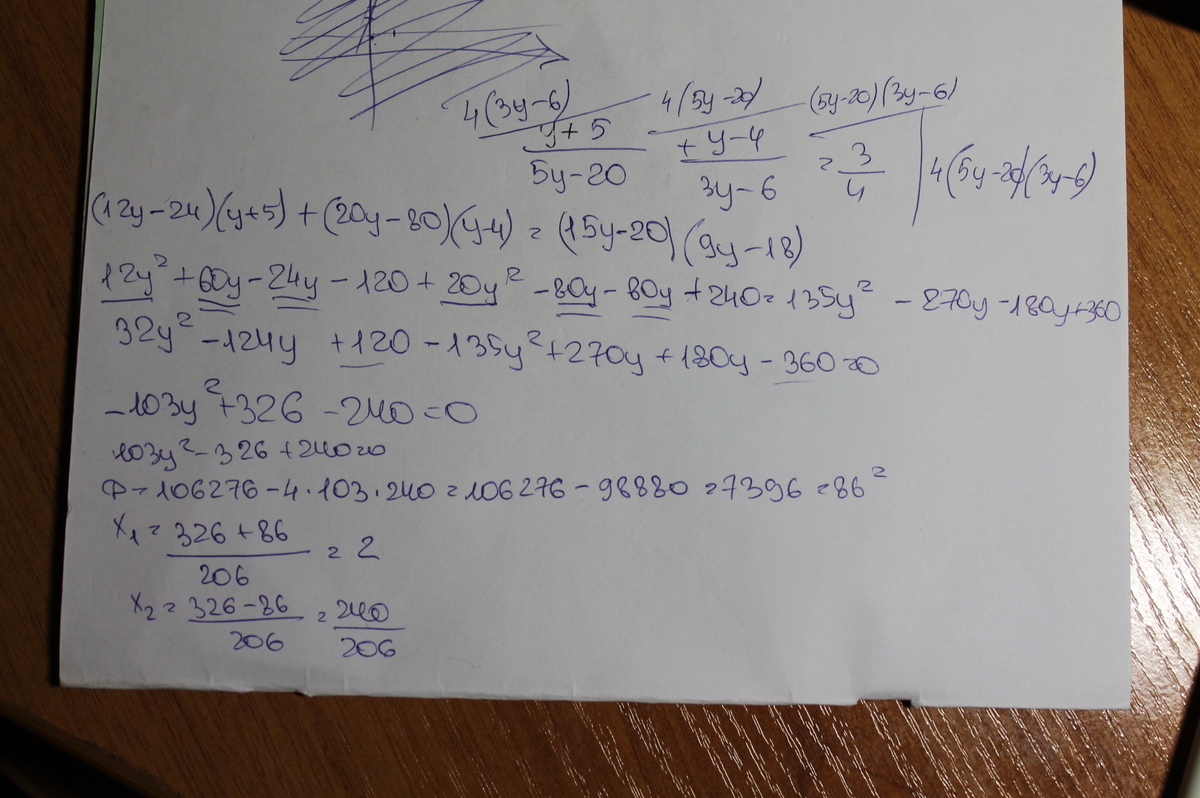 4(3y-6) 4(5y-20) (5y-20)(3y-6)
y+5 + y-4 = 3 | 4(5y-20)(3y-6)
5y-20 3y-6 4
(12y-24)(y+5) + (20y-80)(y-4) = (15y-20)(9y-18)
12y²+60y-24y-120+20y²-80y-80y+240=135y²-270y-180y+360
32y²-124y+120-135y²+270y+180y-360=0
-103y²+326-240=0
103y²-326+240=0
D=106276-4·103·240=106276-98880=7396=86²
x₁=326+86/206=2
x₂=326-86/206=240/206